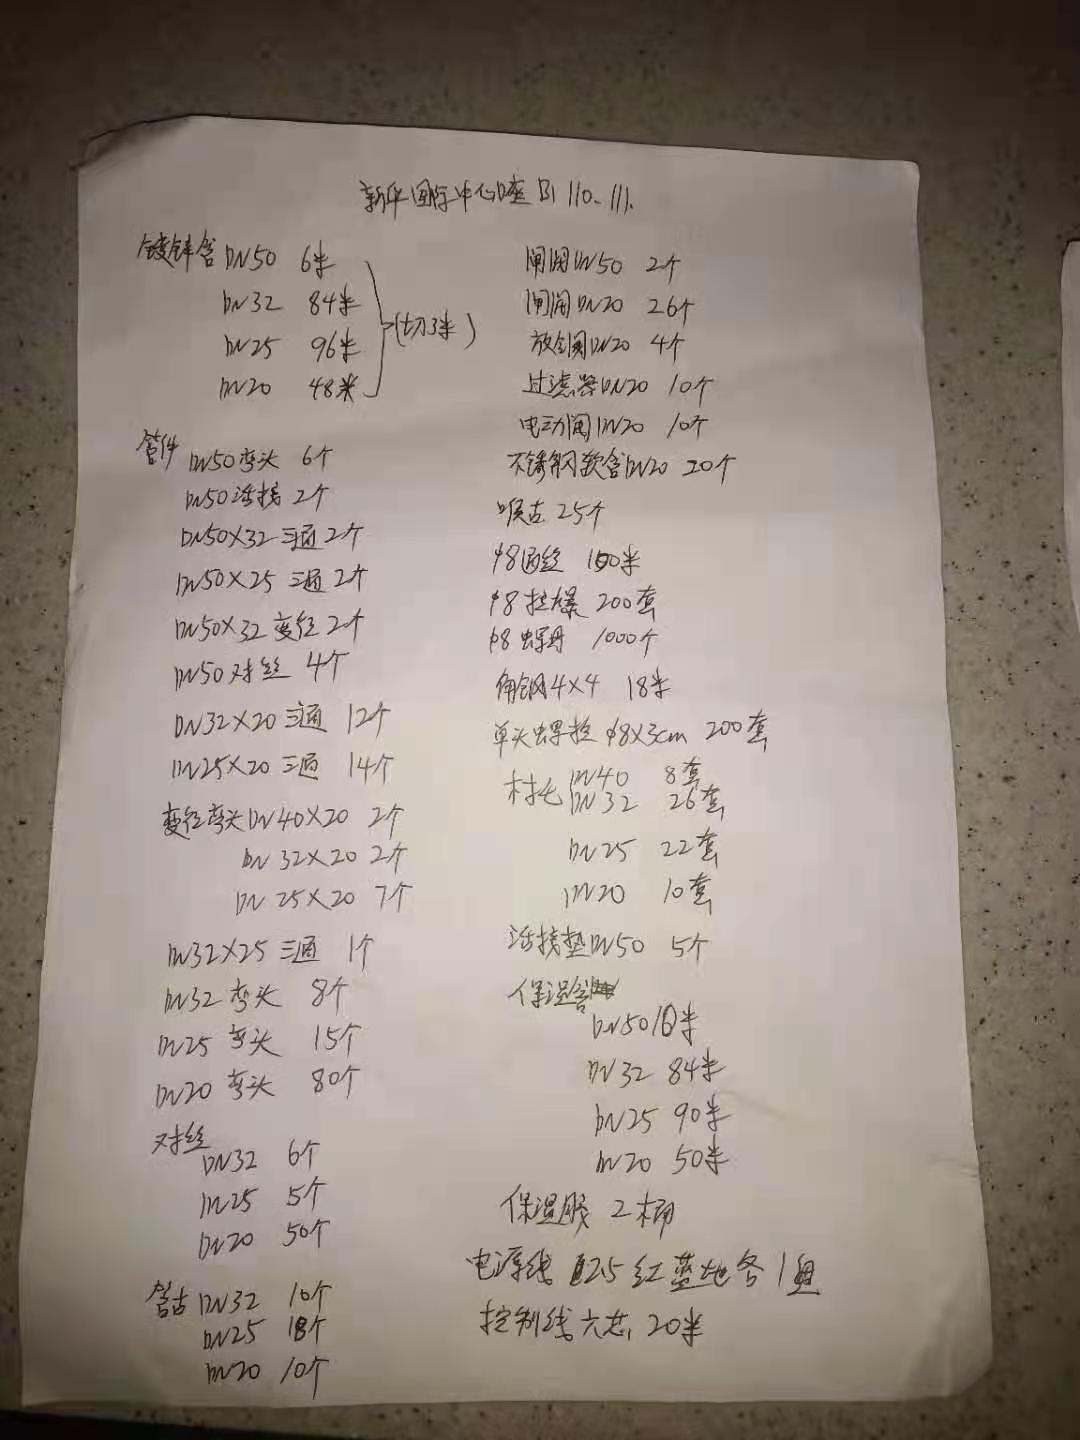 新华国际中心D座B1 110、111.
镀锌管DN50 6米
DN32 84米
DN25 96米
DN20 48米
(切3米)
管件 DN50弯头 6个
DN50活接 2个
DN50×32 三通 2个
DN50×25 三通 2个
DN50×32 变径 2个
DN50对丝 4个
DN32×20 三通 12个
DN25×20 三通 14个
变径弯头DN40×20 2个
DN32×20 2个
DN25×20 7个
DN32×25 三通 1个
DN32 弯头 8个
DN25 弯头 15个
DN20 弯头 80个
对丝
DN32 6个
DN25 5个
DN20 50个
管古 DN32 10个
DN25 18个
DN20 10个
闸阀DN50 2个
闸阀DN20 26个
放气阀DN20 4个
过滤器DN20 10个
电动阀DN20 10个
不锈钢软管DN20 20个
喉古 25个
φ8通丝 100米
φ8拉爆 200套
φ8螺母 1000个
角钢4×4 18米
单头螺栓 φ8×3cm 200套
木托 DN40 8套
DN32 26套
DN25 22套
DN20 10套
活接垫DN50 5个
保温管
DN50 10米
DN32 84米
DN25 90米
DN20 50米
保温胶 2桶
电源线 2.5 红蓝地各1盘
控制线六芯, 20米